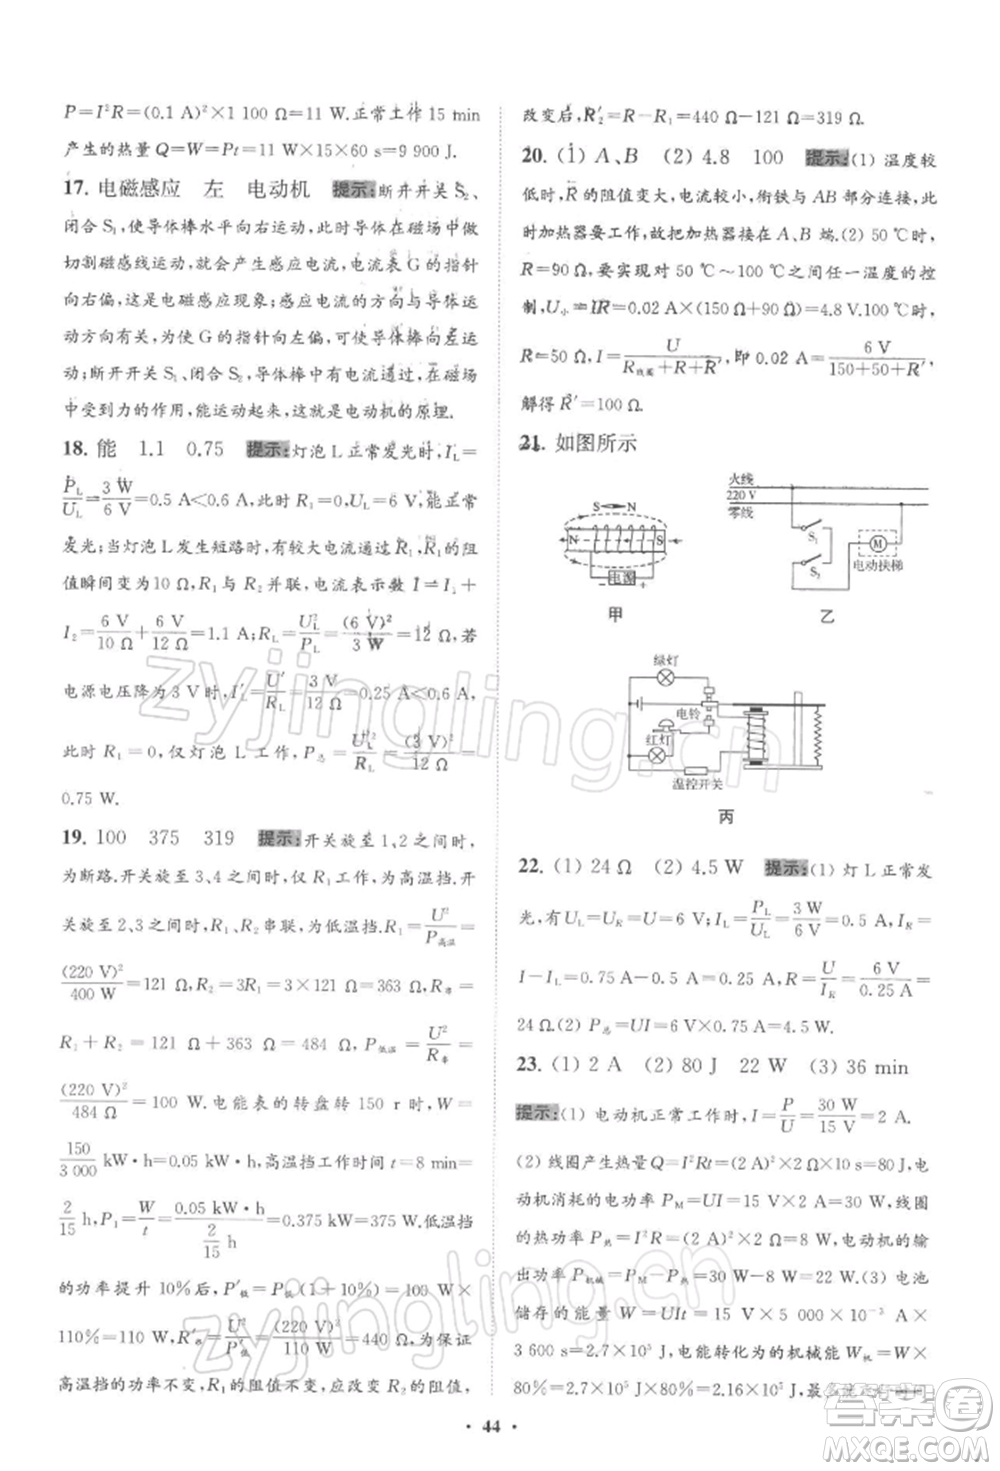 P=I²R=(0.1 A)²×1 100 Ω=11 W.正常工作 15 min
产生的热量 Q=W=Pt=11 W×15×60 s=9 900 J.
17. 电磁感应 左 电动机 提示:断开开关 S₂、
闭合 S₁,使导体棒水平向右运动,此时导体棒在磁场中做
切割磁感线运动,就会产生感应电流,电流表 G 的指针
向右偏,这种现象为电磁感应现象;感应电流的方向与导体运
动方向有关,为使 G 的指针向左偏,可使导体棒向左运
动;断开开关 S₁、闭合 S₂,导体棒中有电流通过,在磁场
中受到力的作用,能运动起来,这就是电动机的原理.
18. 能 1.1 0.75 提示:灯泡 L 正常发光时,I_L=
P_L/U_L=3 W/6 V=0.5 A<0.6 A,此时 R₁=0,U_L=6 V,能正常
发光;当灯泡 L 发生短路时,有较大电流通过 R₁,R₁ 的阻
值瞬间变为 10 Ω,R₁ 与 R₂ 并联,电流表示数 I=I₁+
I₂=6 V/10 Ω+6 V/12 Ω=1.1 A;R_L=U_L²/P_L=(6 V)²/3 W=12 Ω,若
电源电压降为 3 V 时,I′_L=U′/R_L=3 V/12 Ω=0.25 A<0.6 A,
此时 R₁=0,仅灯泡 L 工作,P总=U_L²/R_L=(3 V)²/12 Ω=
0.75 W.
19. 100 375 319 提示:开关旋至 1、2 之间时,
为断路.开关旋至 3、4 之间时,仅 R₁ 工作,为高温挡.开
关旋至 2、3 之间时,R₁、R₂ 串联,为低温挡.R₁=U²/P高温=
(220 V)²/400 W=121 Ω,R₂=3R₁=3×121 Ω=363 Ω,R串=
R₁+R₂=121 Ω+363 Ω=484 Ω,P低温=U²/R串=
(220 V)²/484 Ω=100 W.电能表的转盘转 150 r 时,W=
150/3 000 kW·h=0.05 kW·h,高温挡工作时间 t=8 min=
2/15 h,P₁=W/t=0.05 kW·h/(2/15 h)=0.375 kW=375 W.低温挡
的功率提升 10%后,P′低=P低(1+10%)=100 W×
110%=110 W,R′串=U²/P′低=(220 V)²/110 W=440 Ω,为保证
高温挡的功率不变,R₁ 的阻值不变,应改变 R₂ 的阻值,
改变后,R′₂=R−R₁=440 Ω−121 Ω=319 Ω.
20. (1) A、B (2) 4.8 100 提示:(1) 温度较
低时,R 的阻值变大,电流较小,衔铁与 AB 接触,此
时加热器要工作,故要把加热器接在 A、B 端.(2) 50 ℃时,
R=90 Ω,要实现对 50 ℃~100 ℃之间任一温度的控
制,U小=IR=0.02 A×(150 Ω+90 Ω)=4.8 V.100 ℃时,
R=50 Ω,I=U/(R线圈+R+R′),即 0.02 A=6 V/(150+50+R′),
解得 R′=100 Ω.
21. 如图所示
火线
220 V
零线
S N
N S
电源
甲
S₁
S₂
M
电动扶梯
乙
绿灯
电铃
红灯
温控开关
丙
22. (1) 24 Ω (2) 4.5 W 提示:(1) 灯 L 正常发
光,有 U_L=U_R=U=6 V;I_L=P_L/U_L=3 W/6 V=0.5 A,I_R=
I−I_L=0.75 A−0.5 A=0.25 A,R=U/I_R=6 V/0.25 A=
24 Ω.(2) P总=UI=6 V×0.75 A=4.5 W.
23. (1) 2 A (2) 80 J 22 W (3) 36 min
提示:(1) 电动机正常工作时,I=P/U=30 W/15 V=2 A.
(2) 线圈产生热量 Q=I²Rt=(2 A)²×2 Ω×10 s=80 J,电
动机消耗的电功率 P_M=UI=15 V×2 A=30 W,线圈
的热功率 P热=I²R=(2 A)²×2 Ω=8 W,电动机的输
出功率 P机械=P_M−P热=30 W−8 W=22 W.(3) 电池
储存的能量 W=UIt=15 V×5 000×10⁻³ A×
3 600 s=2.7×10⁵ J,电能转化为的机械能 W机=W×
80%=2.7×10⁵ J×80%=2.16×10⁵ J,
· 44 ·
zyjingling.cn
zyjingling.cn
答案圈
MXQE.COM